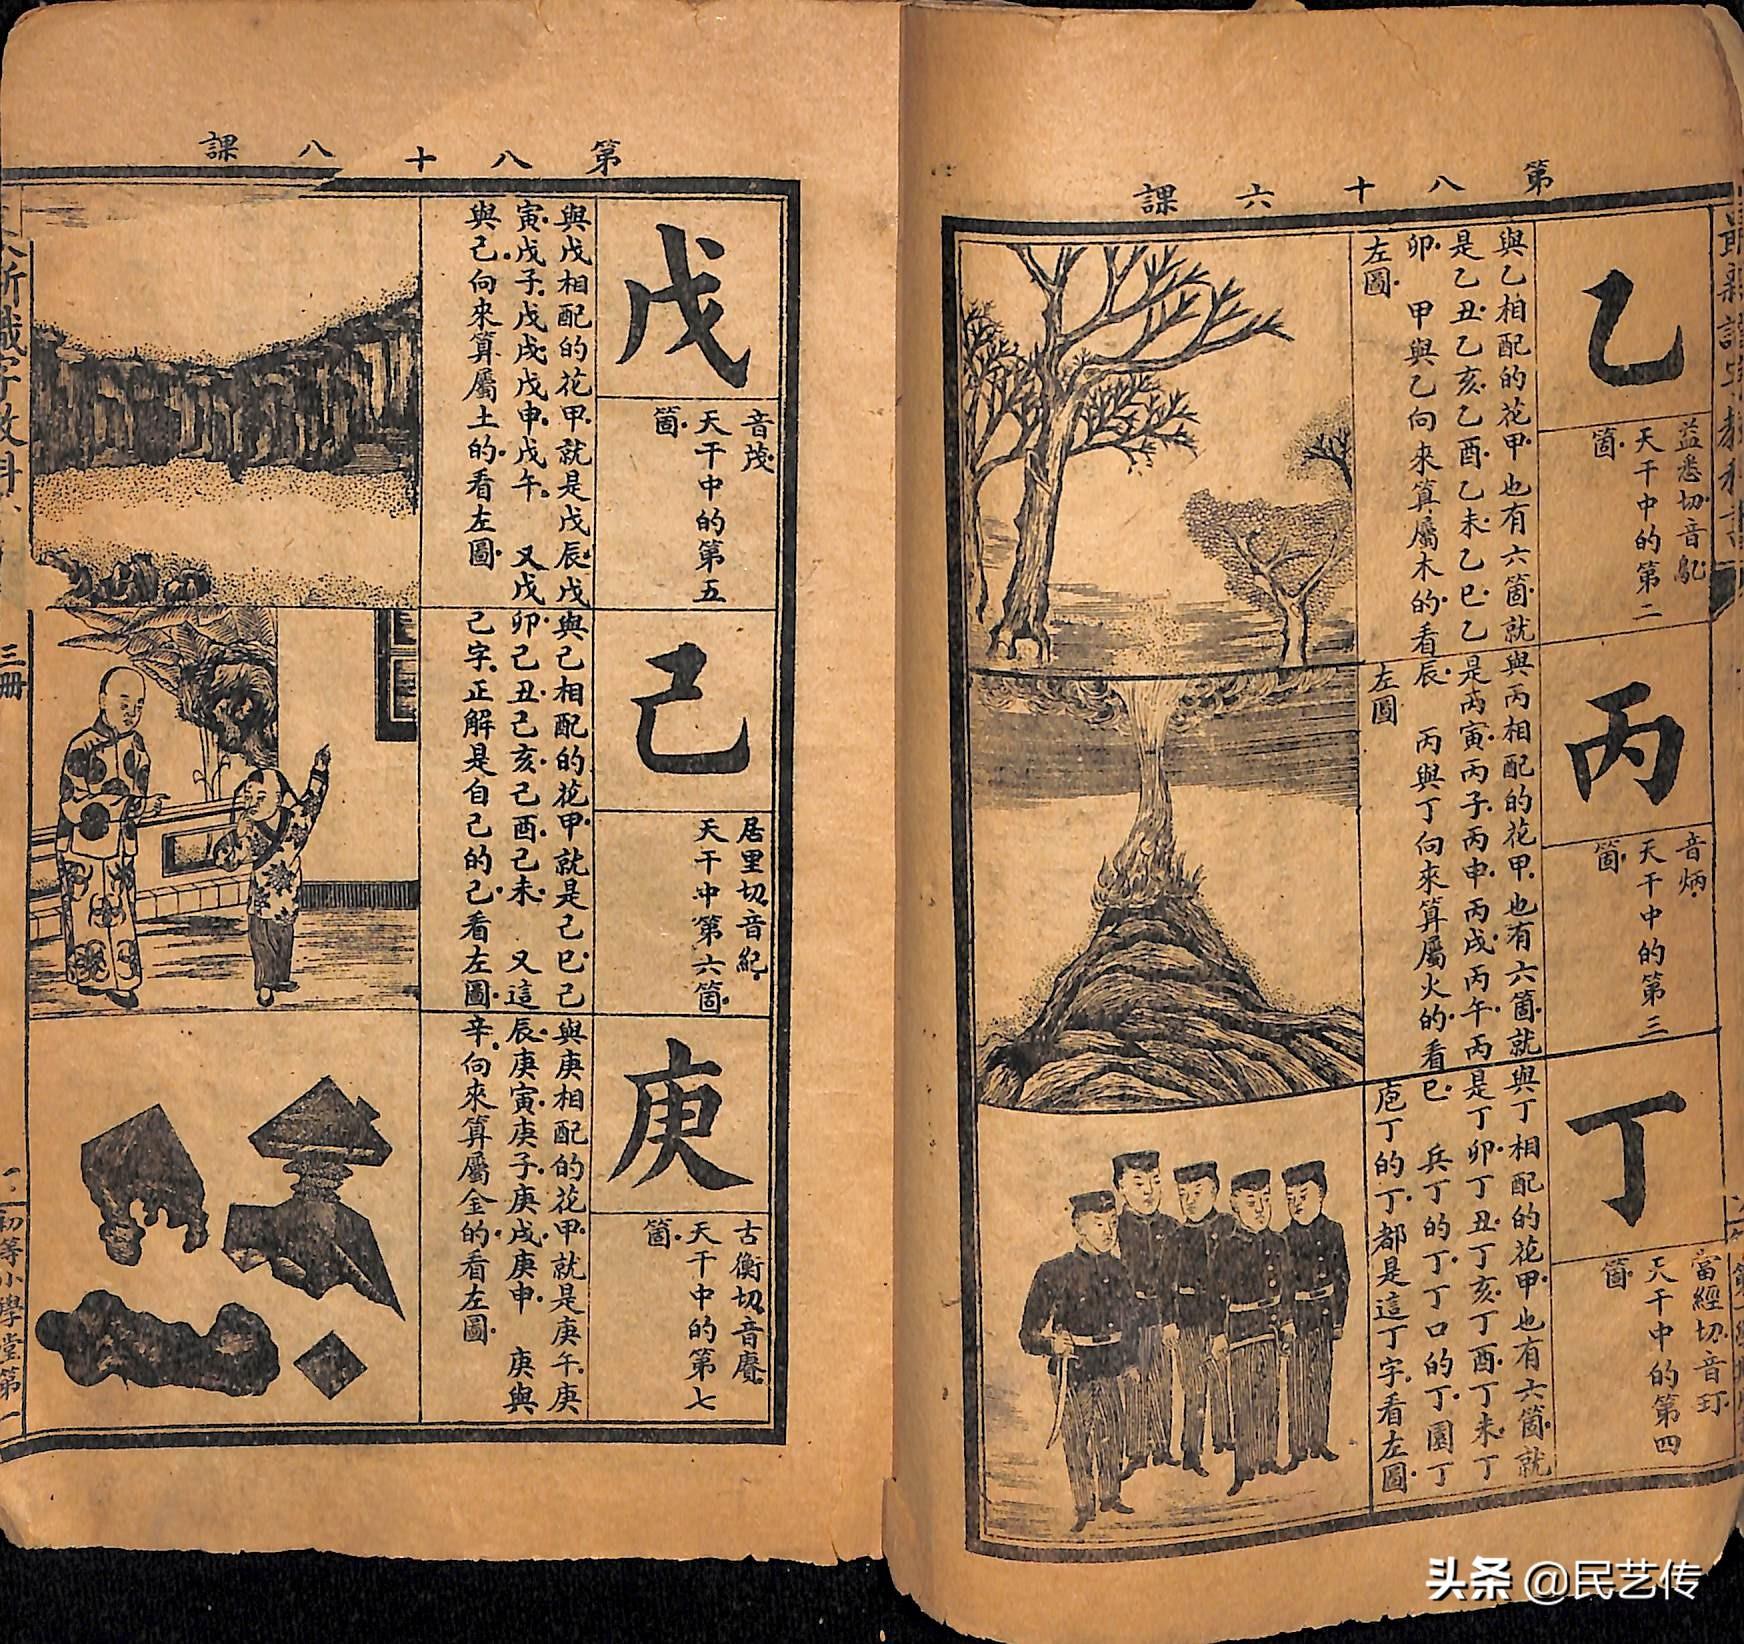 第八十六課
乙
益悉切音鳦
天干中的第二
箇
與乙相配的花甲也有六箇就
是乙丑乙亥乙酉乙未乙巳乙
卯 甲與乙向來算屬木的看
左圖
丙
音炳
天干中的第三
箇
與丙相配的花甲也有六箇就
是丙寅丙子丙申丙戌丙午丙
辰 丙與丁向來算屬火的看
左圖
丁
當經切音玎
天干中的第四
箇
與丁相配的花甲也有六箇就
是丁卯丁丑丁亥丁酉丁未丁
巳 兵丁的丁丁口的丁園丁
庖丁的丁都是這丁字看左圖
第八十八課
戊
音茂
天干中的第五
箇
與戊相配的花甲就是戊辰戊
寅戊子戊戌戊申戊午 又戊
與己向來算屬土的看左圖
己
居里切音紀
天干中第六箇
與己相配的花甲就是己巳己
卯己丑己亥己酉己未 又這
己字正解是自己的己看左圖
庚
古衡切音賡
天干中的第七
箇
與庚相配的花甲就是庚午庚
辰庚寅庚子庚戌庚申 庚與
辛向來算屬金的看左圖
三冊
初等小學堂第一
头条 @民艺传